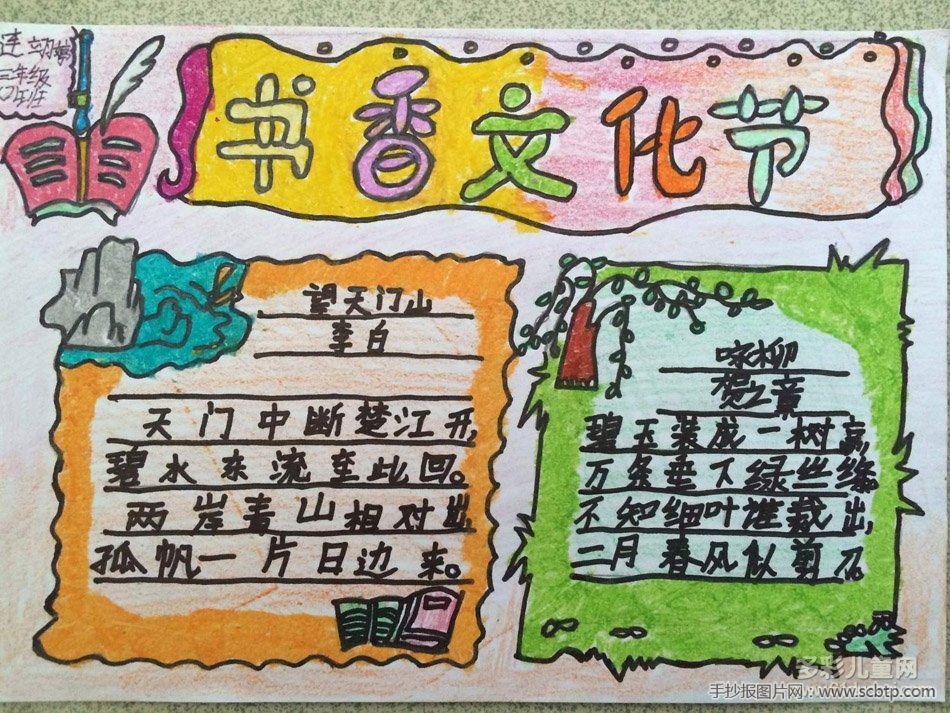 连翊婷
三年级
(7)班
书香文化节
望天门山
李白
天门中断楚江开,
碧水东流至此回。
两岸青山相对出,
孤帆一片日边来。
咏柳
贺之章
碧玉装成一树高,
万条垂下绿丝绦。
不知细叶谁裁出,
二月春风似剪刀。
多彩儿童网
手抄报图片网：www.scbtp.com